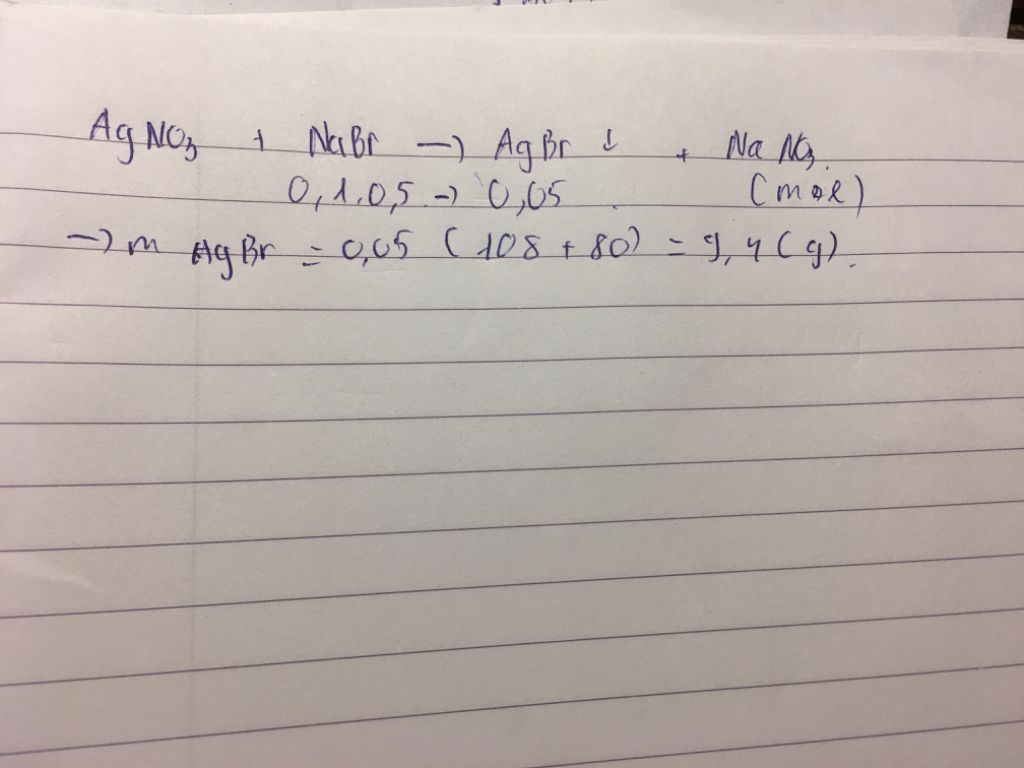 AgNO3 + NaBr → AgBr ↓ + NaNO3.
0,1.0,5 → 0,05 (mol)
→ m AgBr = 0,05 (108 + 80) = 9,4 (g).